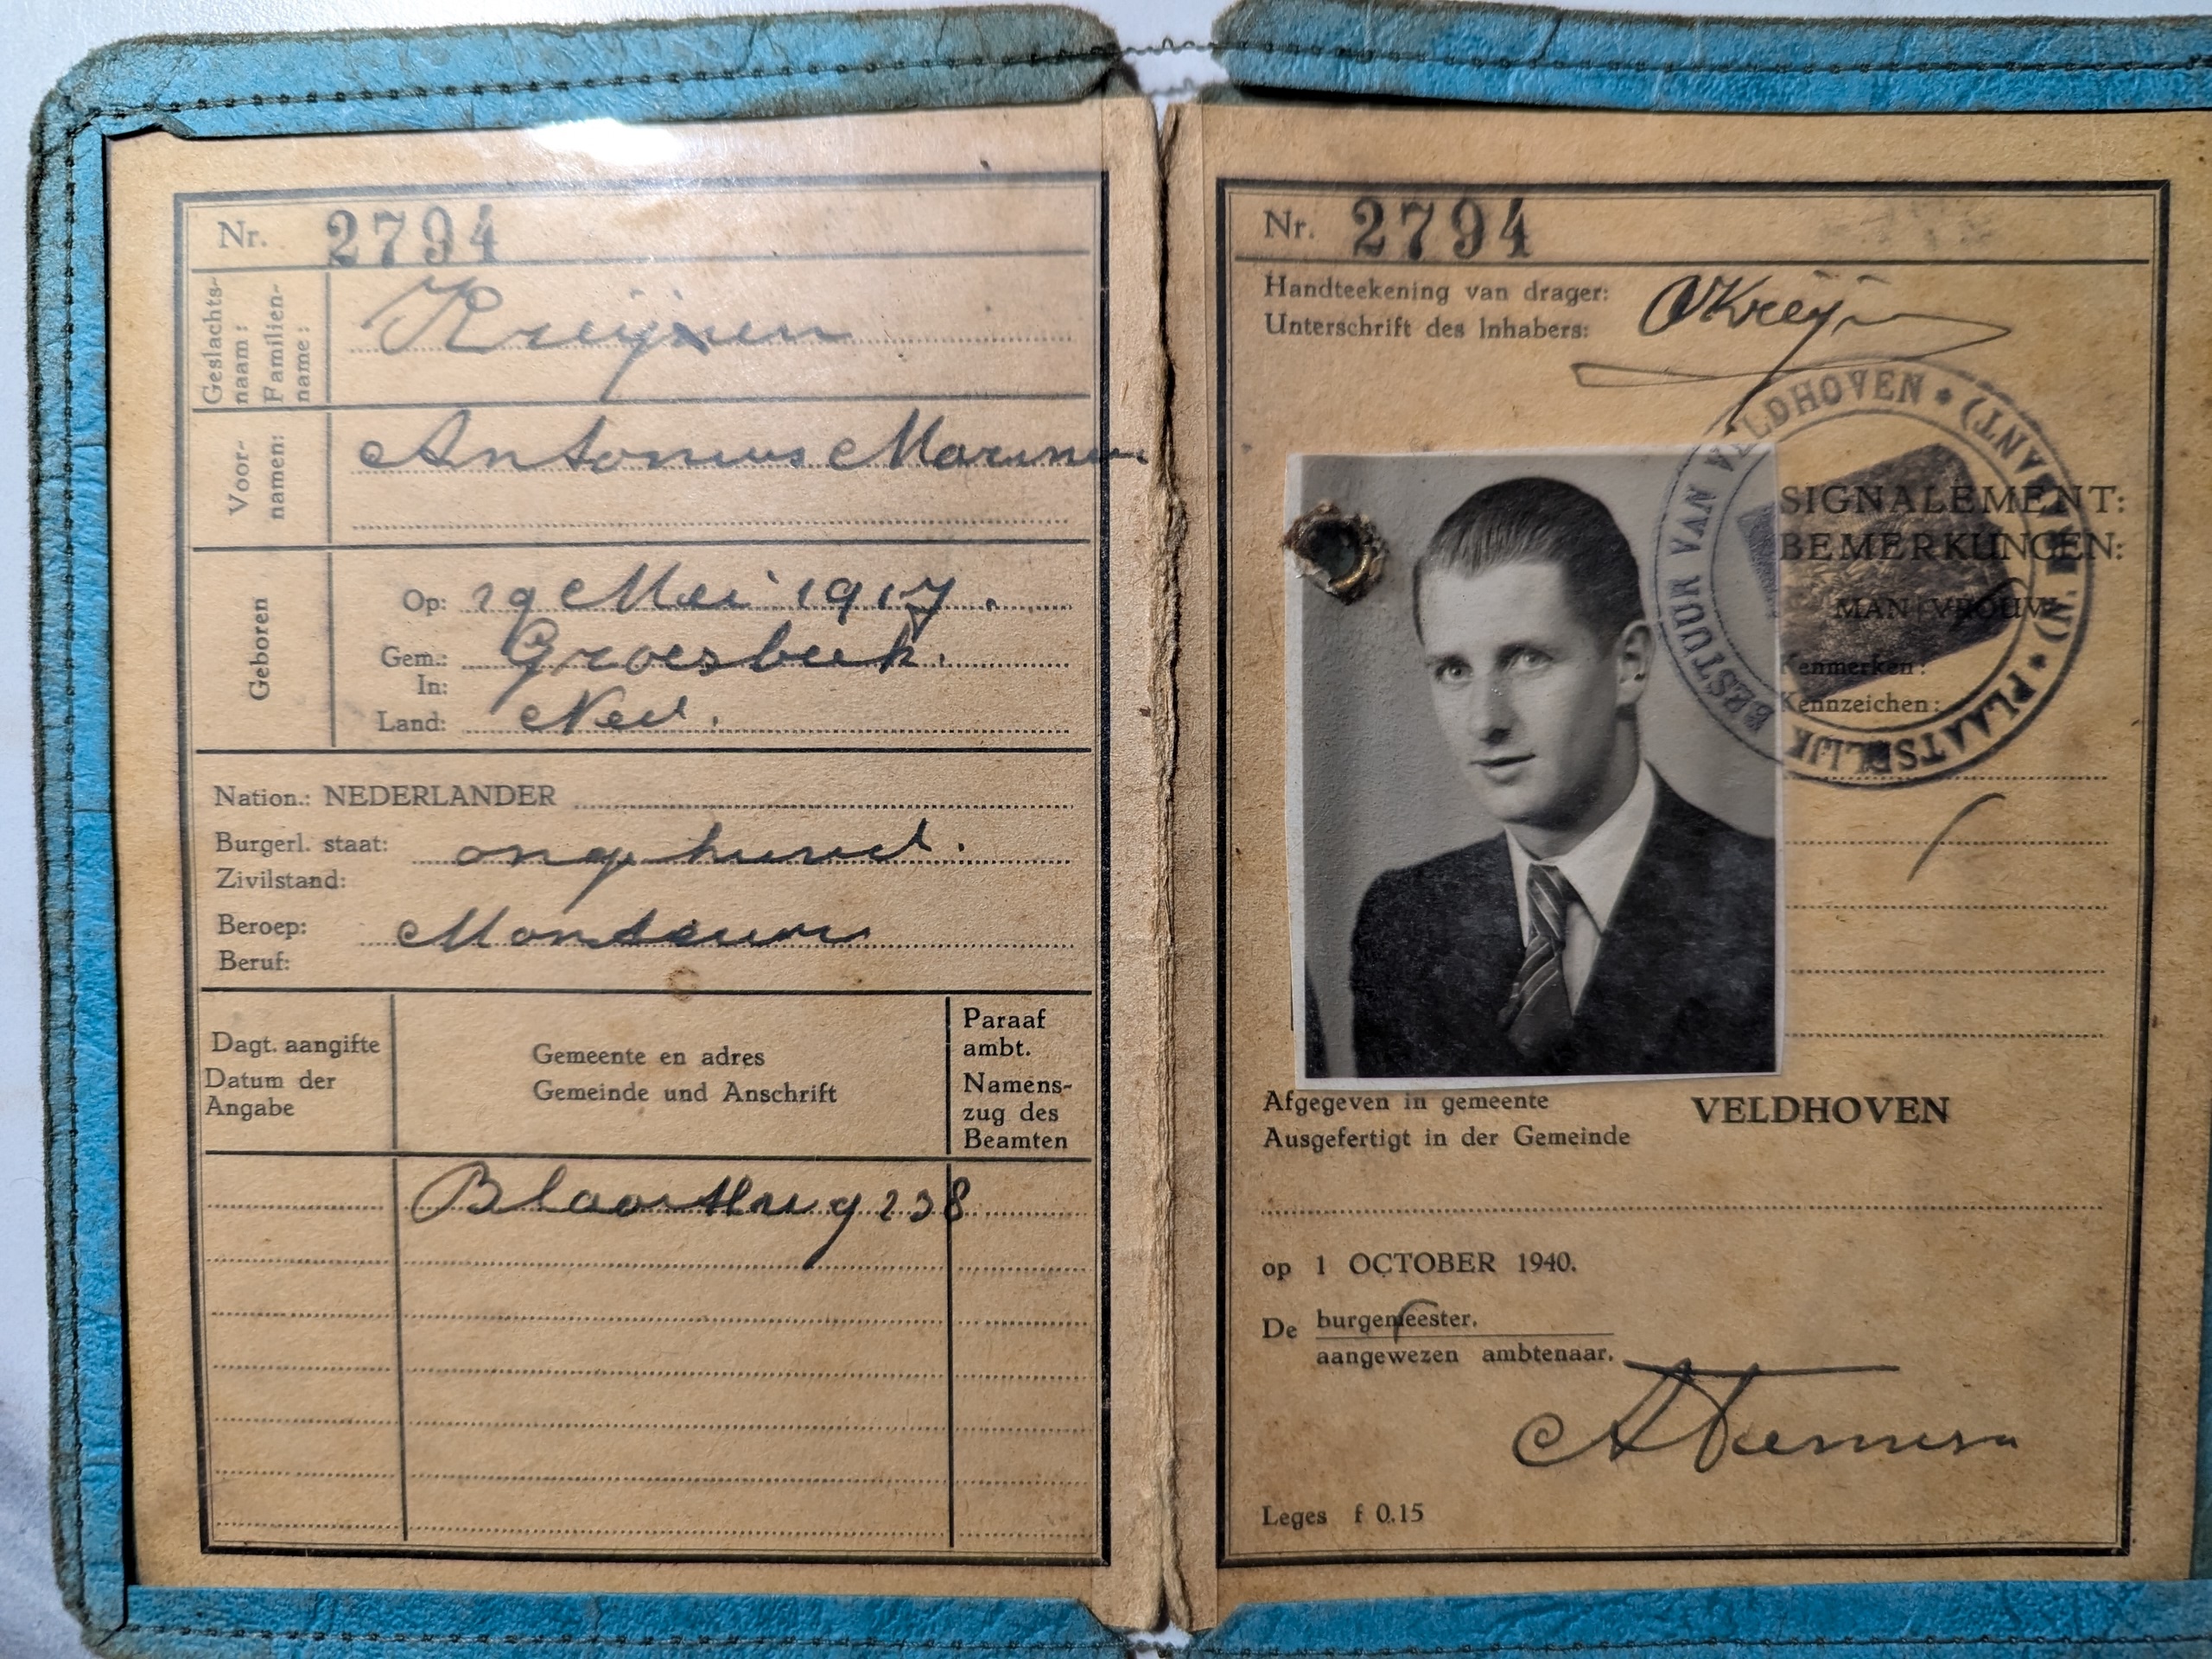 Nr. 2794
Geslachts-
naam:
Familien-
name:
Kreijnen
Voor-
namen:
Antonius
Geboren
Op: 19 Mei 1917.
Gem.: Groesbeek.
In:
Land: Ned.
Nation.: NEDERLANDER
Burgerl. staat: ongehuwd.
Zivilstand:
Beroep: Monteur
Beruf:
Dagt. aangifte
Datum der
Angabe
Gemeente en adres
Gemeinde und Anschrift
Paraaf
ambt.
Namens-
zug des
Beamten
238
Nr. 2794
Handteekening van drager:
Unterschrift des Inhabers:
PLAATSELIJK BESTUUR VAN VELDHOVEN
SIGNALEMENT:
BEMERKUNGEN:
MAN VROUW
Kenmerken:
Kennzeichen:
Afgegeven in gemeente VELDHOVEN
Ausgefertigt in der Gemeinde
op 1 OCTOBER 1940.
De burgemeester.
aangewezen ambtenaar.
Leges f 0.15